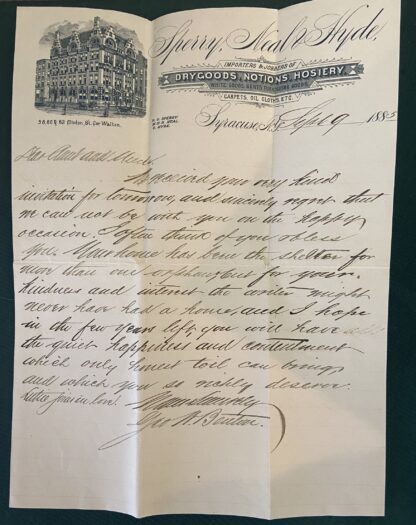 Sperry, Neal & Hyde,
IMPORTERS & JOBBERS OF
DRYGOODS, NOTIONS, HOSIERY
WHITE GOODS, GENTS FURNISHING GOODS,
CARPETS, OIL CLOTHS, ETC.
58, 60 & 62 Clinton St. Cor. Walton.
Syracuse, N.Y. Sept 9 1885
Dear Aunt and Uncle.
We received your very kind
invitation for tomorrow, and sincerely regret that
we can not be with you on the happy
occasion. I often think of you & bless
you. Your home has been the shelter for
more than one orphan, but for your
kindness and interest the writer might
never have had a home, and I hope
in the few years left you will have
the quiet happiness and contentment
which only honest toil can bring
and which you so richly deserve.
Lettie joins in love. Yours sincerely
Geo. N.